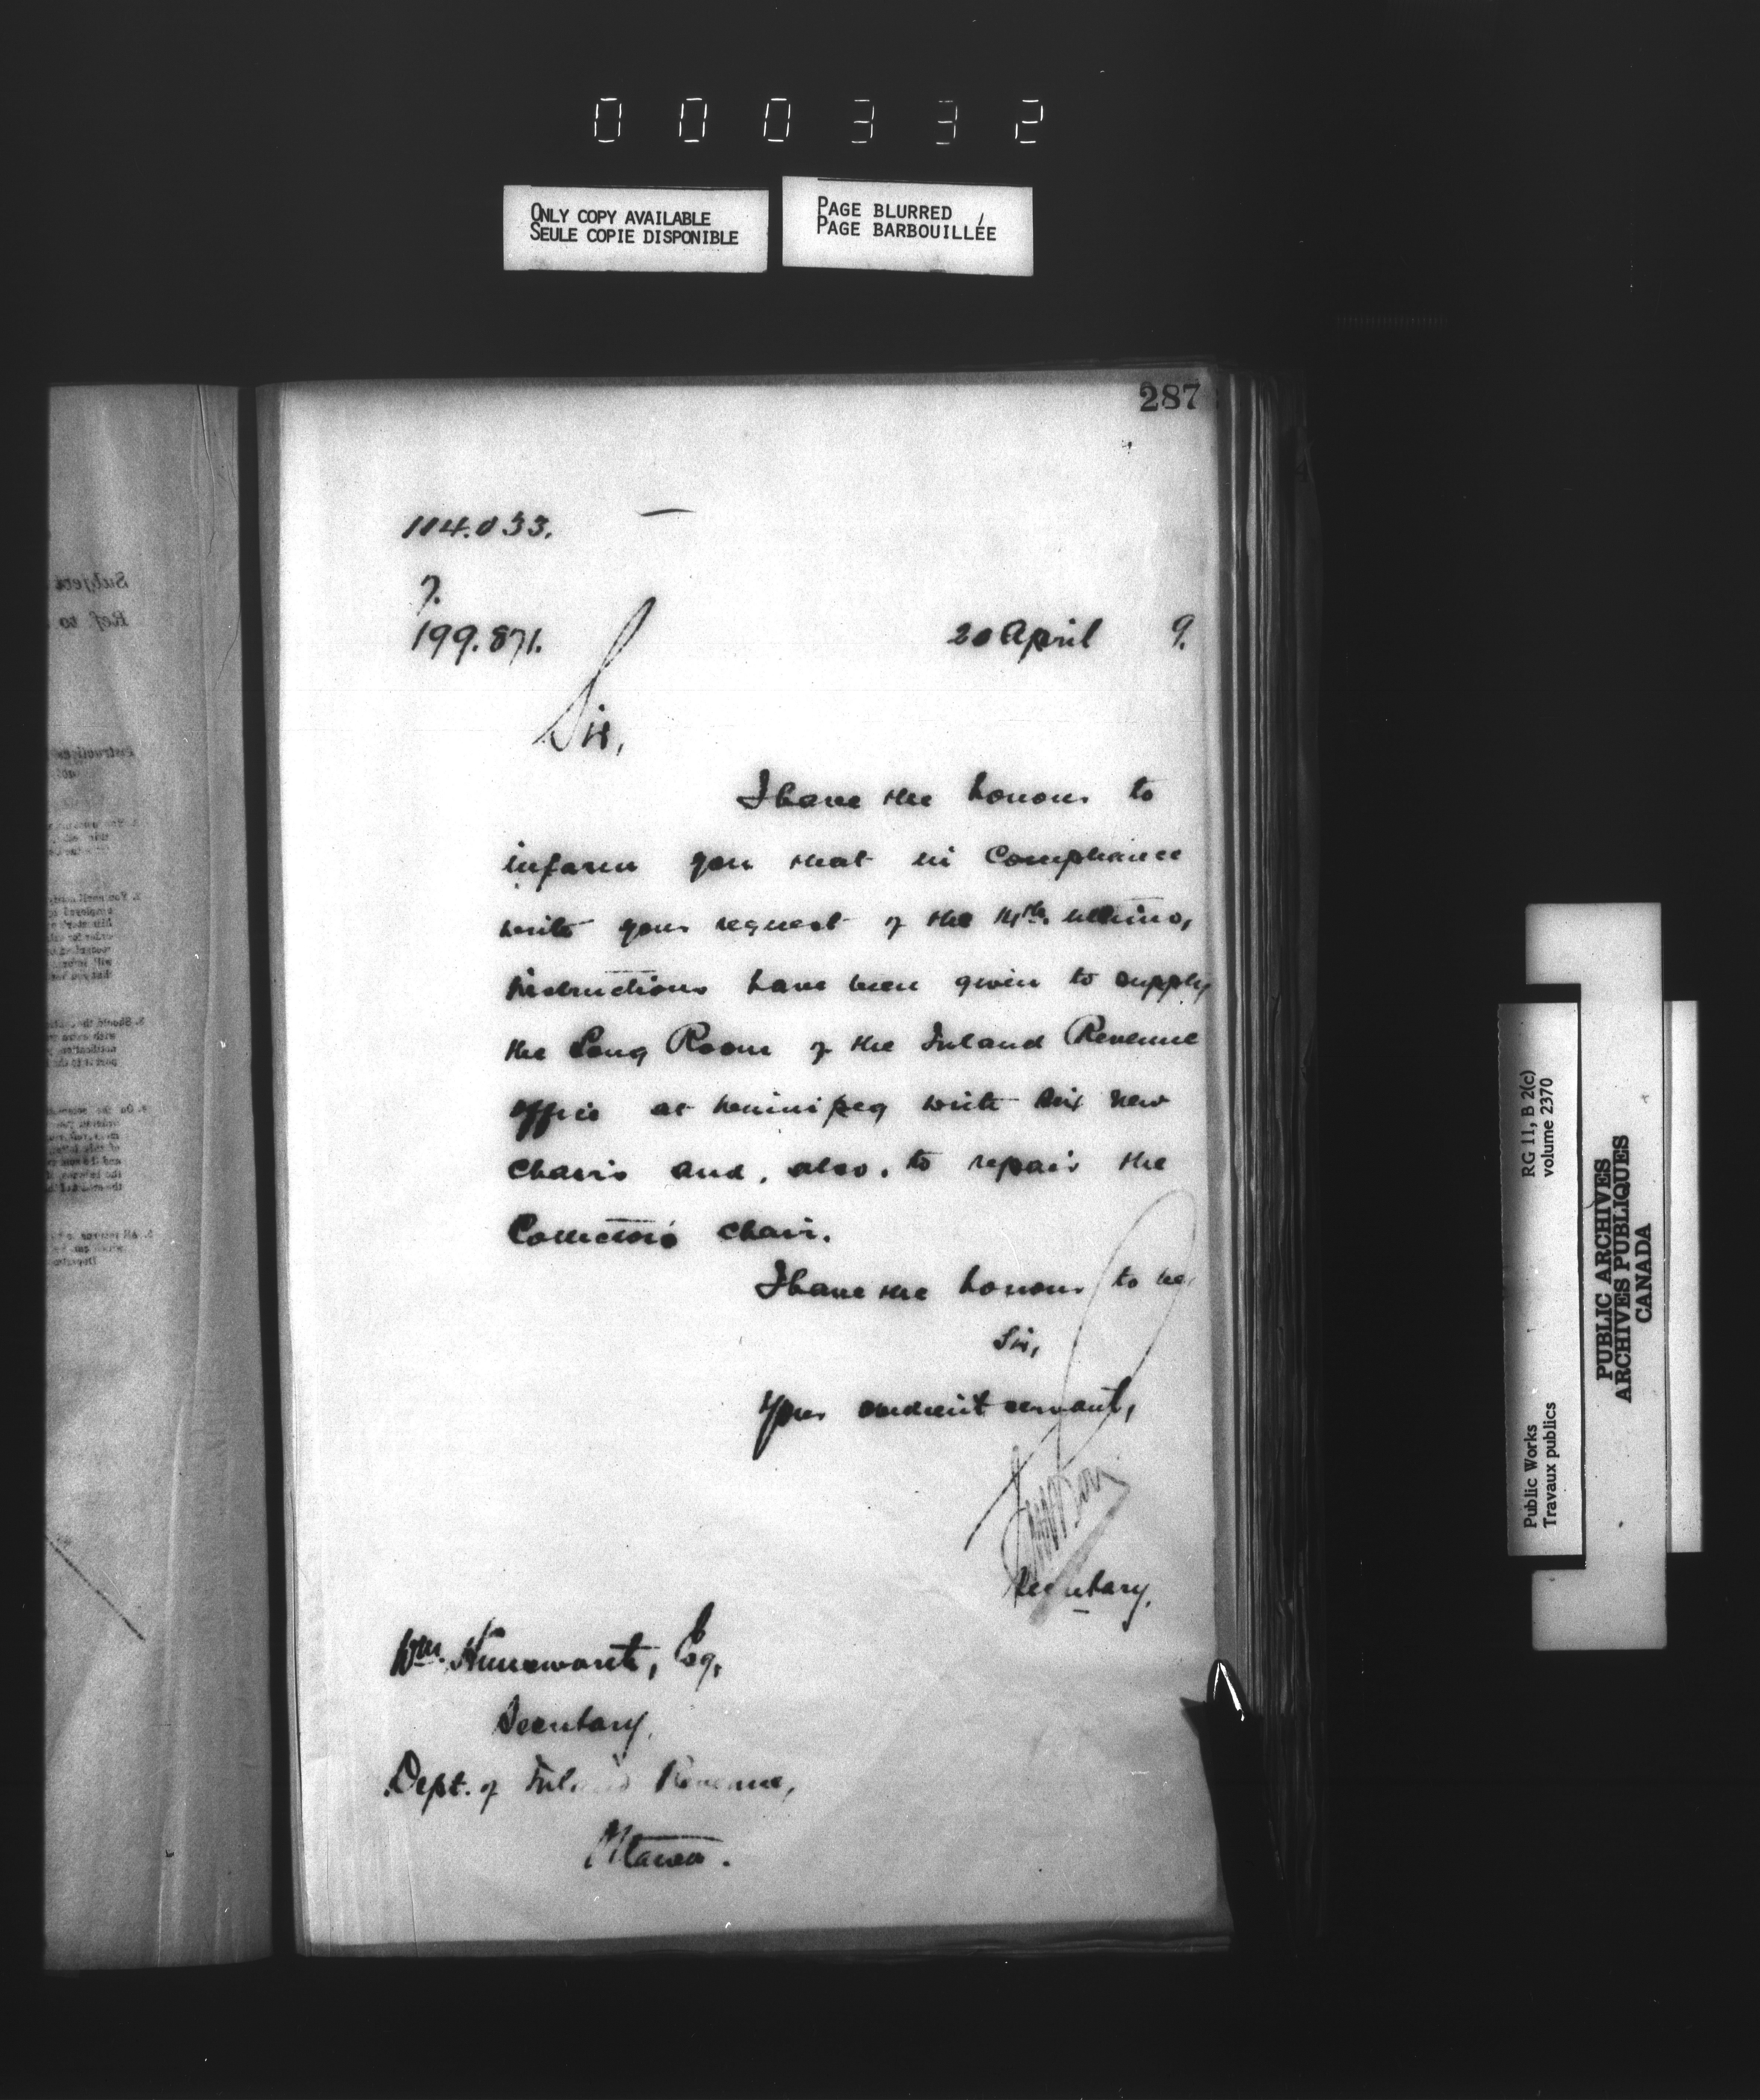 000332
ONLY COPY AVAILABLE
SEULE COPIE DISPONIBLE
PAGE BLURRED
PAGE BARBOUILLÉE
287
114.033.
7.
199.871.
20 April 9.
Sir,
I have the honour to
inform you that in compliance
with your request of the 14th. ultimo,
instructions have been given to supply
the Long Room of the Inland Revenue
Office at Winnipeg with six new
chairs and, also, to repair the
Collector's chair.
I have the honour to be,
Sir,
Your obedient servant,
Secretary.
Wm. Himsworth, Esq,
Secretary,
Dept. of Inland Revenue,
Ottawa.
Subject
Ref. to
RG 11, B 2(c)
volume 2370
Public Works
Travaux publics
PUBLIC ARCHIVES
ARCHIVES PUBLIQUES
CANADA